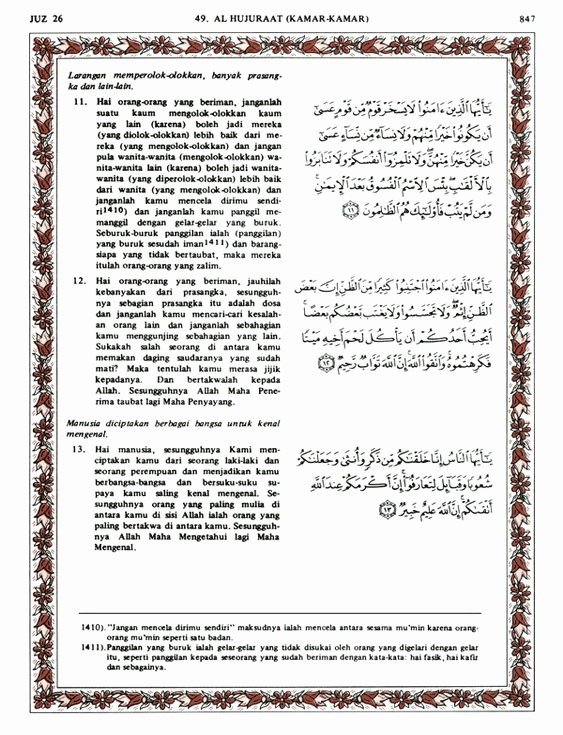 JUZ 26 49. AL HUJURAAT (KAMAR-KAMAR) 847
Larangan memperolok-olokkan, banyak prasang-
ka dan lain-lain.
11. Hai orang-orang yang beriman, janganlah
suatu kaum mengolok-olokkan kaum
yang lain (karena) boleh jadi mereka
(yang diolok-olokkan) lebih baik dari me-
reka (yang mengolok-olokkan) dan jangan
pula wanita-wanita (mengolok-olokkan) wa-
nita-wanita lain (karena) boleh jadi wanita-
wanita (yang diperolok-olokkan) lebih baik
dari wanita (yang mengolok-olokkan) dan
janganlah kamu mencela dirimu sendi-
ri1410) dan janganlah kamu panggil me-
manggil dengan gelar-gelar yang buruk.
Seburuk-buruk panggilan ialah (panggilan)
yang buruk sesudah iman1411) dan barang-
siapa yang tidak bertaubat, maka mereka
itulah orang-orang yang zalim.
يَـٰٓأَيُّهَا ٱلَّذِينَ ءَامَنُوا۟ لَا يَسْخَرْ قَوْمٌ مِّن قَوْمٍ عَسَىٰٓ
أَن يَكُونُوا۟ خَيْرًا مِّنْهُمْ وَلَا نِسَآءٌ مِّن نِّسَآءٍ عَسَىٰٓ
أَن يَكُنَّ خَيْرًا مِّنْهُنَّ وَلَا تَلْمِزُوٓا۟ أَنفُسَكُمْ وَلَا تَنَابَزُوا۟
بِٱلْأَلْقَـٰبِ بِئْسَ ٱلِٱسْمُ ٱلْفُسُوقُ بَعْدَ ٱلْإِيمَـٰنِ
وَمَن لَّمْ يَتُبْ فَأُو۟لَـٰٓئِكَ هُمُ ٱلظَّـٰلِمُونَ ١١
12. Hai orang-orang yang beriman, jauhilah
kebanyakan dari prasangka, sesungguh-
nya sebagian prasangka itu adalah dosa
dan janganlah kamu mencari-cari kesalah-
an orang lain dan janganlah sebahagian
kamu menggunjing sebahagian yang lain.
Sukakah salah seorang di antara kamu
memakan daging saudaranya yang sudah
mati? Maka tentulah kamu merasa jijik
kepadanya. Dan bertakwalah kepada
Allah. Sesungguhnya Allah Maha Pene-
rima taubat lagi Maha Penyayang.
يَـٰٓأَيُّهَا ٱلَّذِينَ ءَامَنُوا۟ ٱجْتَنِبُوا۟ كَثِيرًا مِّنَ ٱلظَّنِّ إِنَّ بَعْضَ
ٱلظَّنِّ إِثْمٌ وَلَا تَجَسَّسُوا۟ وَلَا يَغْتَب بَّعْضُكُم بَعْضًا
أَيُحِبُّ أَحَدُكُمْ أَن يَأْكُلَ لَحْمَ أَخِيهِ مَيْتًا
فَكَرِهْتُمُوهُ وَٱتَّقُوا۟ ٱللَّهَ إِنَّ ٱللَّهَ تَوَّابٌ رَّحِيمٌ ١٢
Manusia diciptakan berbagai bangsa untuk kenal
mengenal.
13. Hai manusia, sesungguhnya Kami men-
ciptakan kamu dari seorang laki-laki dan
seorang perempuan dan menjadikan kamu
berbangsa-bangsa dan bersuku-suku su-
paya kamu saling kenal mengenal. Se-
sungguhnya orang yang paling mulia di
antara kamu di sisi Allah ialah orang yang
paling bertakwa di antara kamu. Sesungguh-
nya Allah Maha Mengetahui lagi Maha
Mengenal.
يَـٰٓأَيُّهَا ٱلنَّاسُ إِنَّا خَلَقْنَـٰكُم مِّن ذَكَرٍ وَأُنثَىٰ وَجَعَلْنَـٰكُمْ
شُعُوبًا وَقَبَآئِلَ لِتَعَارَفُوٓا۟ إِنَّ أَكْرَمَكُمْ عِندَ ٱللَّهِ
أَتْقَىٰكُمْ إِنَّ ٱللَّهَ عَلِيمٌ خَبِيرٌ ١٣
1410). "Jangan mencela dirimu sendiri" maksudnya ialah mencela antara sesama mu'min karena orang-
orang mu'min seperti satu badan.
1411). Panggilan yang buruk ialah gelar-gelar yang tidak disukai oleh orang yang digelari dengan gelar
itu, seperti panggilan kepada seseorang yang sudah beriman dengan kata-kata: hai fasik, hai kafir
dan sebagainya.